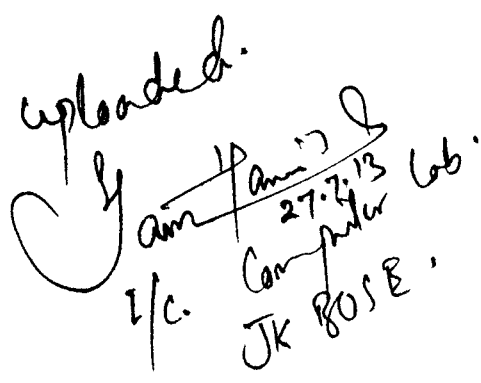 uploaded.
27.7.13
I/c. Computer Lab.
JK BOSE.